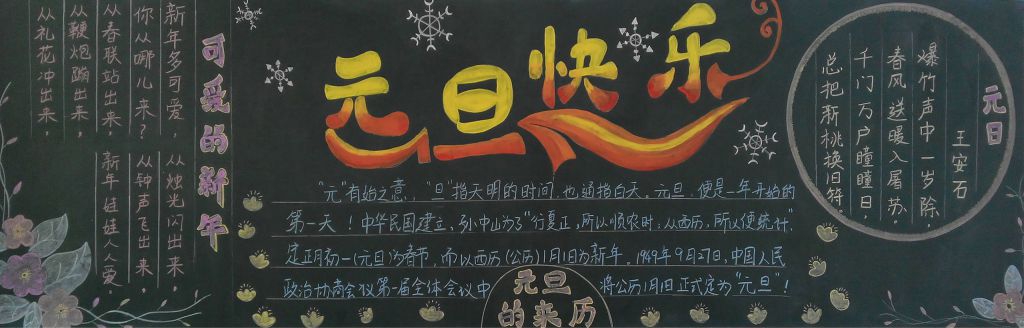 元旦快乐
可爱的新年
新年多可爱，
你从哪儿来？
从春联站出来，
从鞭炮蹦出来，
从礼花冲出来，
从烛光闪出来，
从钟声飞出来，
新年娃娃人人爱。
"元"有始之意，"旦"指天明的时间，也通指白天。元旦，便是一年开始的
第一天！中华民国建立，孙中山为了"行夏正，所以顺农时，从西历，所以便统计"，
定正月初一(元旦)为春节，而以西历(公历)1月1日为新年。1949年9月27日，中国人民
政治协商会议第一届全体会议中
将公历1月1日正式定为"元旦"！
元旦
的来历
元日
王安石
爆竹声中一岁除，
春风送暖入屠苏。
千门万户曈曈日，
总把新桃换旧符。